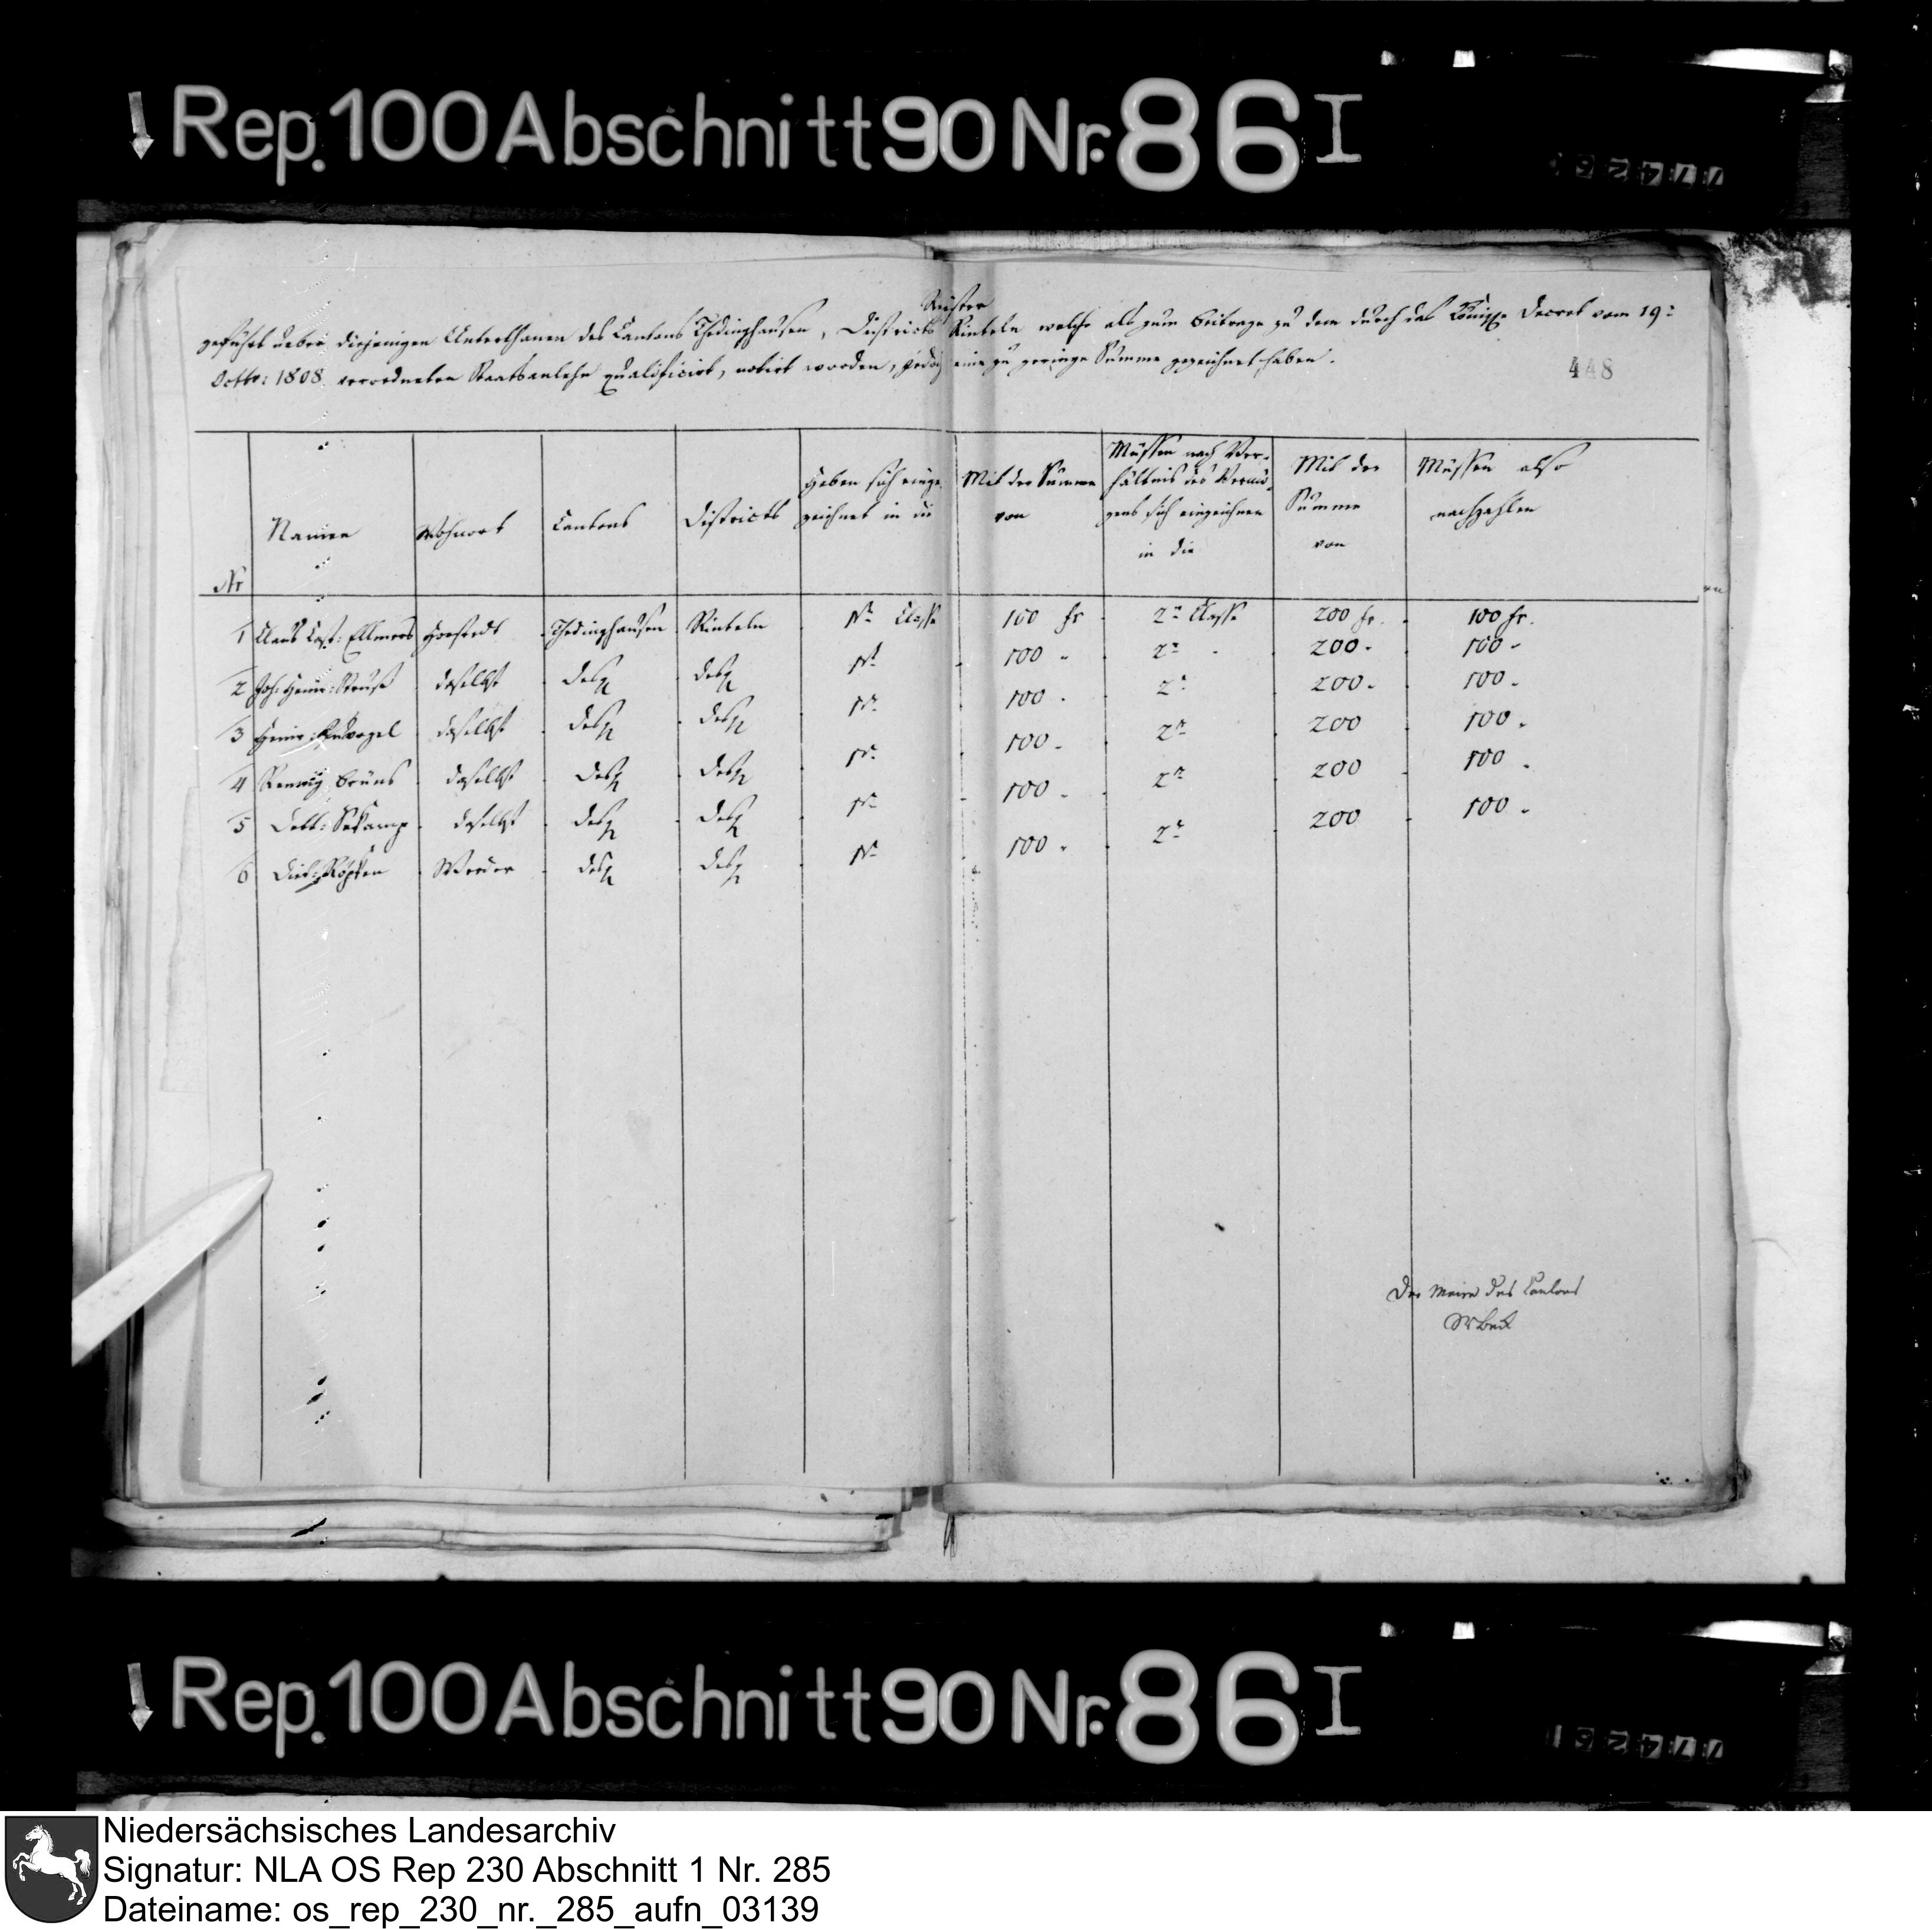 Rep. 100 Abschnitt 90 Nr. 86 I
Register
geführt ueber diejenigen Unterthanen des Cantons Thedinghausen, Districts Rinteln welche als zum Beitrage zu dem durch das Königl. Decret vom 19=
Octbr: 1808. verordneten Staatsanlehn qualificirt, notirt worden, jedoch eine zu geringe Summe gezeichnet haben.
448
Nr Namen Wohnort Cantons Districts Haben sich einge zeichnet in die Mit der Summe von Müssen nach Ver- hältnis des Vermö- gens sich einzeichnen in die Mit der Summe von Müssen also nachzahlen
1 Claus Cast: Ellmers Horstedt Thedinghausen Rinteln 1te Classe 100 fr 2te Classe 200 fr. 100 fr.
2 Joh: Heinr: daselbst des desgl 1te 100 - 2te - 200 - 100 -
3 Heinr: daselbst desgl desgl 1te 100 - 2te 200 - 100 -
4 Brüns daselbst desgl desgl 1te 100 - 2te 200 100 -
5 daselbst desgl desgl 1te 100 - 2te 200 100 -
6 Died: Röpken Werder desgl desgl 1te 100 - 2te 200 100 -
Der Maire des Cantons
Rep. 100 Abschnitt 90 Nr. 86 I
Niedersächsisches Landesarchiv
Signatur: NLA OS Rep 230 Abschnitt 1 Nr. 285
Dateiname: os_rep_230_nr._285_aufn_03139